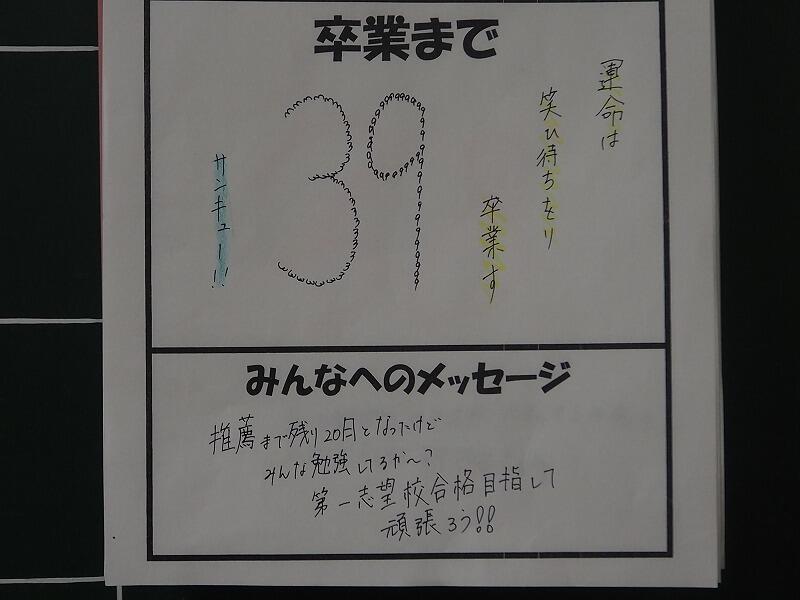 卒業まで
運命は
笑ひ待ちをり
卒業す
39
サンキュー!!
みんなへのメッセージ
推薦まで残り20日となったけど
みんな勉強してるか〜?
第一志望校合格目指して
頑張ろう!!